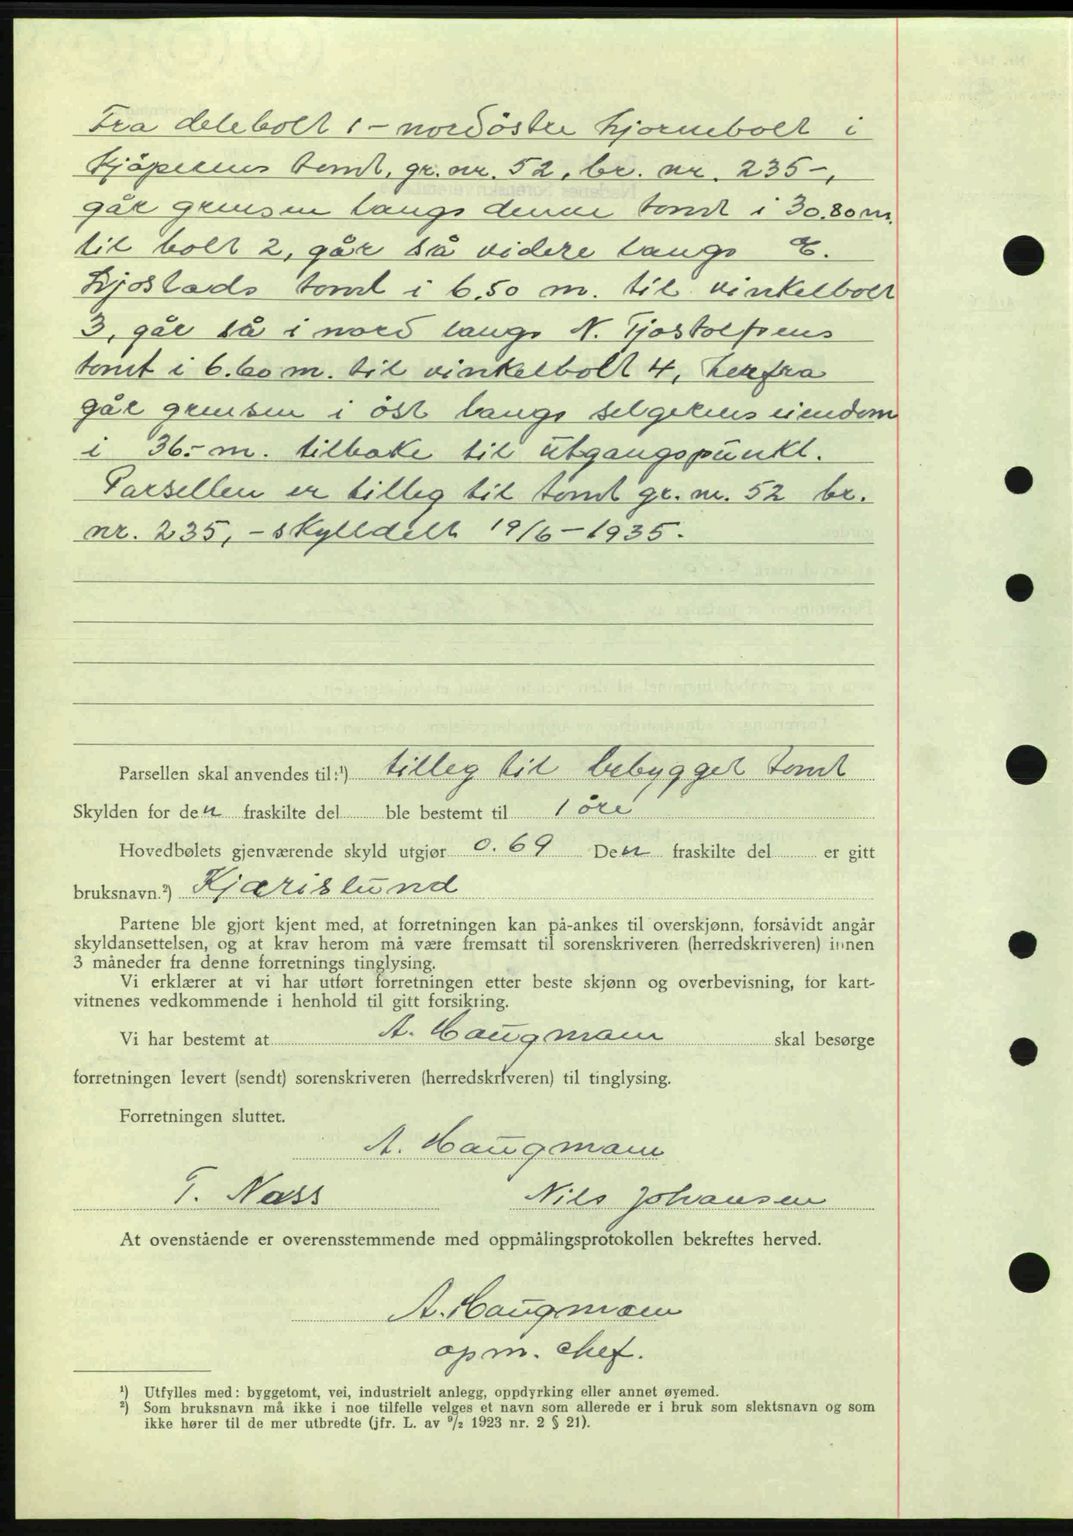 Fra delebolt 1 – nordöstre hjörnebolt i
kjöperens tomt, gr. nr. 52, br. nr. 235 –,
går grensen langs denne tomt i 30.80 m.
til bolt 2, går så videre langs E.
Kjostads tomt i 6.50 m. til vinkelbolt
3, går så i nord langs N. Tjostolfsens
tomt i 6.60 m. til vinkelbolt 4, herfra
går grensen i öst langs selgerens eiendom
i 36.- m. tilbake til utgangspunkt.
Parsellen er tilleg til tomt gr. nr. 52 br.
nr. 235, – skylldelt 19/6 – 1935.
Parsellen skal anvendes til:¹) tilleg til bebygget tomt
Skylden for den fraskilte del ble bestemt til 1 öre
Hovedbølets gjenværende skyld utgjør 0.69 Den fraskilte del er gitt
bruksnavn.²) Kjærislund
Partene ble gjort kjent med, at forretningen kan på-ankes til overskjønn, forsåvidt angår
skyldansettelsen, og at krav herom må være fremsatt til sorenskriveren (herredskriveren) innen
3 måneder fra denne forretnings tinglysing.
Vi erklærer at vi har utført forretningen etter beste skjønn og overbevisning, for kart-
vitnenes vedkommende i henhold til gitt forsikring.
Vi har bestemt at A. Haugmann skal besørge
forretningen levert (sendt) sorenskriveren (herredskriveren) til tinglysing.
Forretningen sluttet.
A. Haugmann
T. Næss Nils Johansen
At ovenstående er overensstemmende med oppmålingsprotokollen bekreftes herved.
A. Haugmann
opm. chef.
¹) Utfylles med: byggetomt, vei, industrielt anlegg, oppdyrking eller annet øyemed.
²) Som bruksnavn må ikke i noe tilfelle velges et navn som allerede er i bruk som slektsnavn og som
ikke hører til de mer utbredte (jfr. L. av ⁹/₂ 1923 nr. 2 § 21).